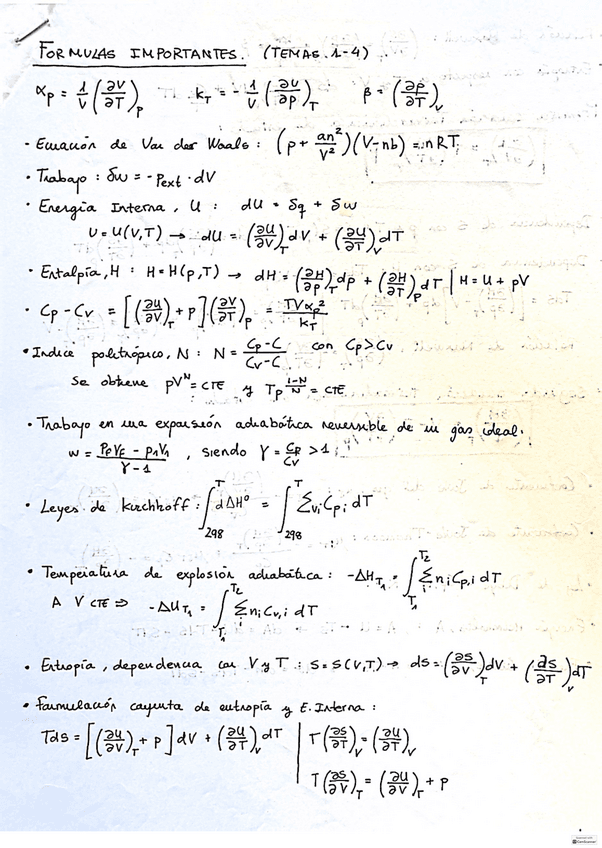 FORMULAS IMPORTANTES. (TEMAS 1-4)
αp = 1/V (∂V/∂T)p    kT = - 1/V (∂V/∂p)T    β = (∂p/∂T)V
· Ecuación de Van der Waals: (p + an²/V²)(V-nb) = nRT.
· Trabajo: δw = -Pext · dV
· Energía Interna, U: dU = δq + δw
U = U(V,T) → dU = (∂U/∂V)T dV + (∂U/∂T)V dT
· Entalpía, H: H = H(p,T) → dH = (∂H/∂p)T dp + (∂H/∂T)p dT | H = U + pV
· Cp - Cv = [(∂U/∂V)T + p] (∂V/∂T)p = TVαp²/kT
· Indice politrópico, N: N = Cp-C/Cv-C con Cp>Cv
Se obtiene pV^N = CTE y Tp^(1-N/N) = CTE
· Trabajo en una expansión adiabática reversible de un gas ideal.
w = PfVf - p1V1/γ-1 , siendo γ = Cp/Cv > 1
· Leyes de Kirchhoff: ∫298^T dΔH° = ∫298^T Σνi Cpi dT
· Temperatura de explosión adiabática: -ΔHT1 = ∫T1^T2 Σi ni Cp,i dT
A V CTE ⇒ -ΔUT1 = ∫T1^T2 Σi ni Cv,i dT
· Entropía, dependencia con V y T: S = S(V,T) → dS = (∂S/∂V)T dV + (∂S/∂T)V dT
· Formulación conjunta de entropía y E. Interna:
TdS = [(∂U/∂V)T + p] dV + (∂U/∂T)V dT | T(∂S/∂T)V = (∂U/∂T)V
T(∂S/∂V)T = (∂U/∂V)T + p
CamScanner